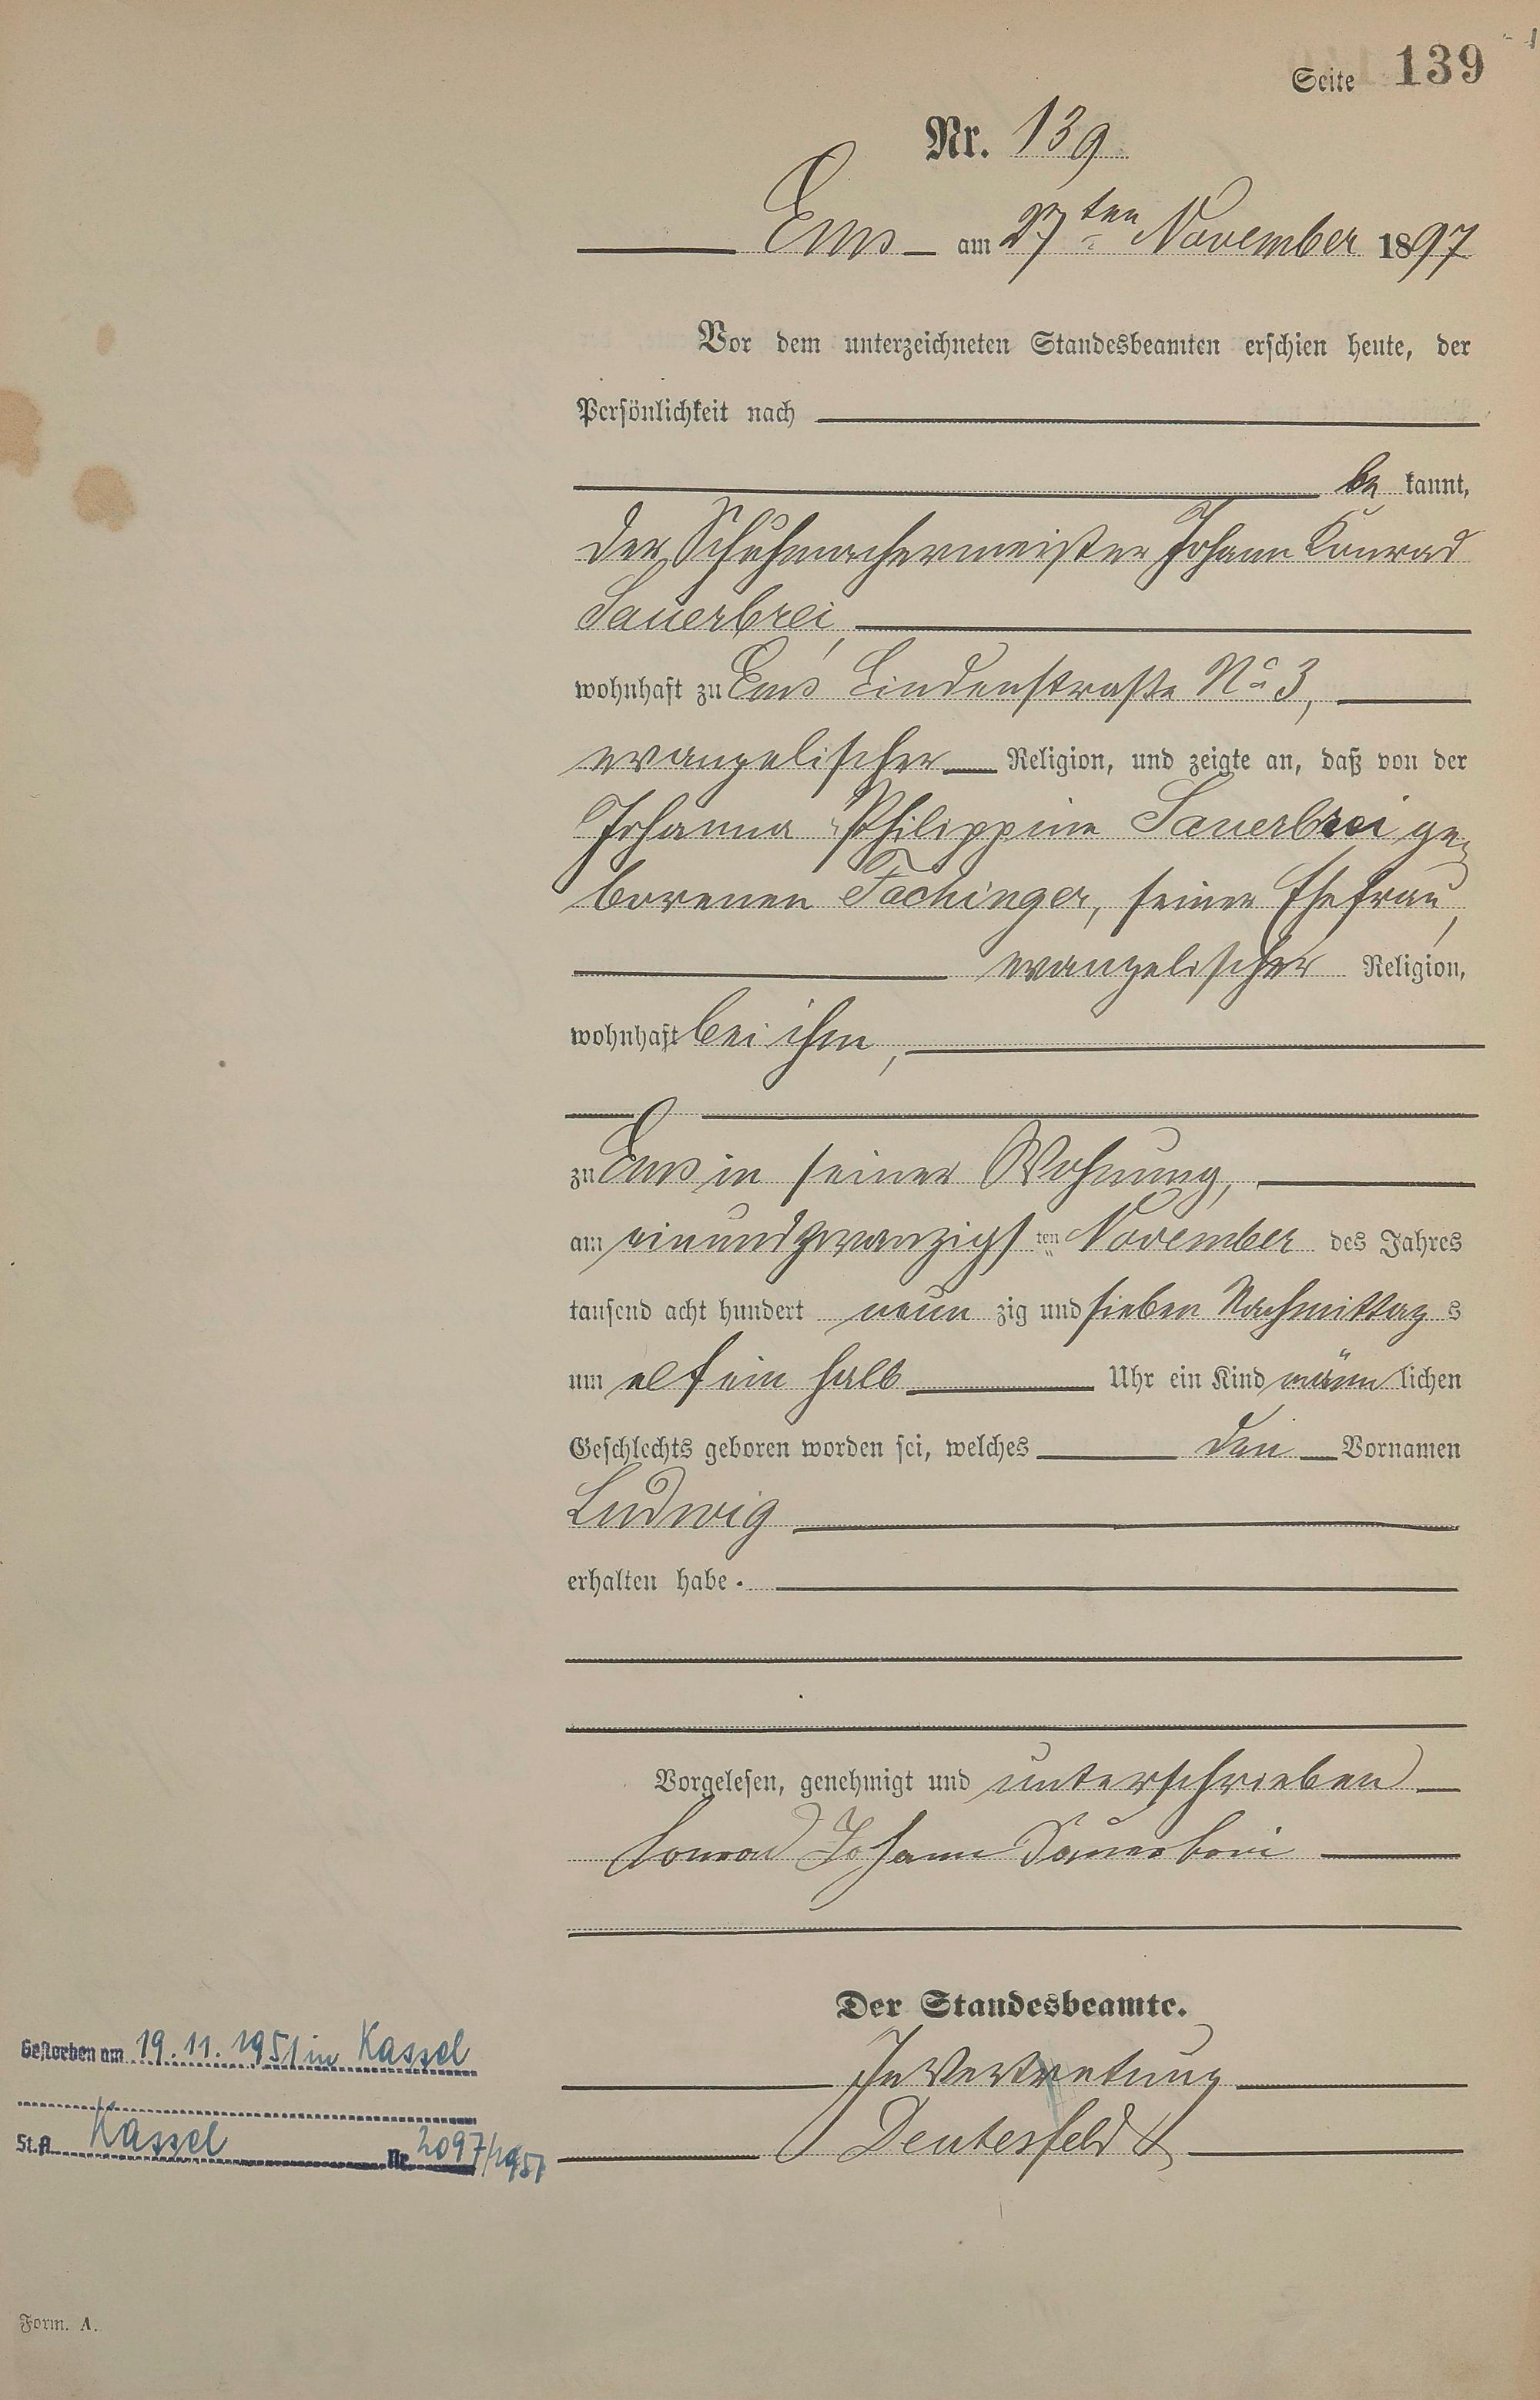 Seite 139
Nr. 139
Ems am 27ten November 1897
Vor dem unterzeichneten Standesbeamten erschien heute, der
Persönlichkeit nach
be kannt,
der Schuhmachermeister Johann Konrad
Sauerbrei,
wohnhaft zu Ems Lindenstraße No 3,
evangelischer Religion, und zeigte an, daß von der
Johanna Philippine Sauerbrei ge-
borenen Fachinger, seiner Ehefrau,
evangelischer Religion,
wohnhaft bei ihm,
zu Ems in seiner Wohnung,
am einundzwanzigs ten November des Jahres
tausend acht hundert neun zig und sieben Nachmittag s
um elf ein halb Uhr ein Kind männ lichen
Geschlechts geboren worden sei, welches den Vornamen
Ludwig
erhalten habe.
Vorgelesen, genehmigt und unterschrieben
Conrad Johann Sauerbrei
Der Standesbeamte.
In Vertretung
Gestorben am 19.11.1951 in Kassel
St.A. Kassel Nr. 2097/1951
Form. A.